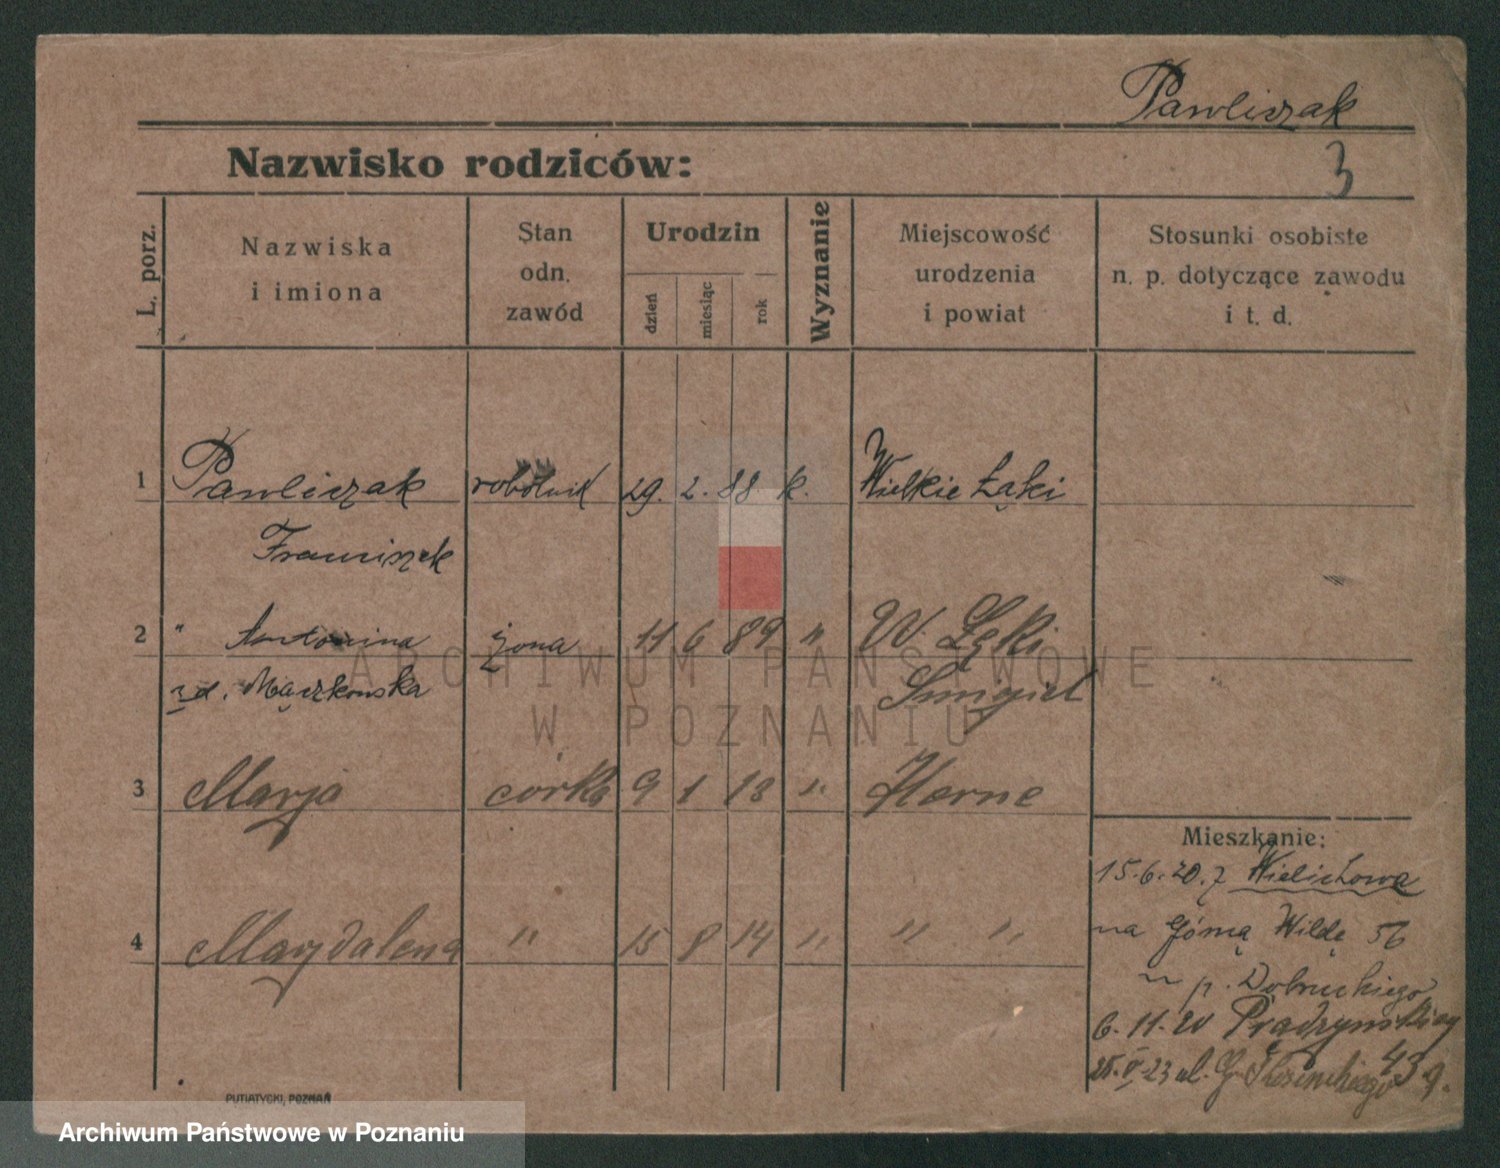 Pawliczak
Nazwisko rodziców:
3
L. porz.
Nazwiska
i imiona
Stan
odn.
zawód
Urodzin
dzień
miesiąc
rok
Wyznanie
Miejscowość
urodzenia
i powiat
Stosunki osobiste
n. p. dotyczące zawodu
i t. d.
1 Pawliczak robotnik 29. 2. 88 k. Wielkie Łąki
Franciszek
2 " Antonina żona 11 6 89 " W. Łęki
zd. Mączkowska Śmigiel
3 Marja córka 9 1 13 " Herne
4 Magdalena " 15 8 14 " " "
Mieszkanie:
15.6.20. z Wielichowa
na Górną Wildę 56
p. Dobruckiego
6.11.20 Prądzyńskiego
43
25.V.23 ul. G.
ARCHIWUM PAŃSTWOWE
W POZNANIU
PUTIATYCKI, POZNAŃ
Archiwum Państwowe w Poznaniu